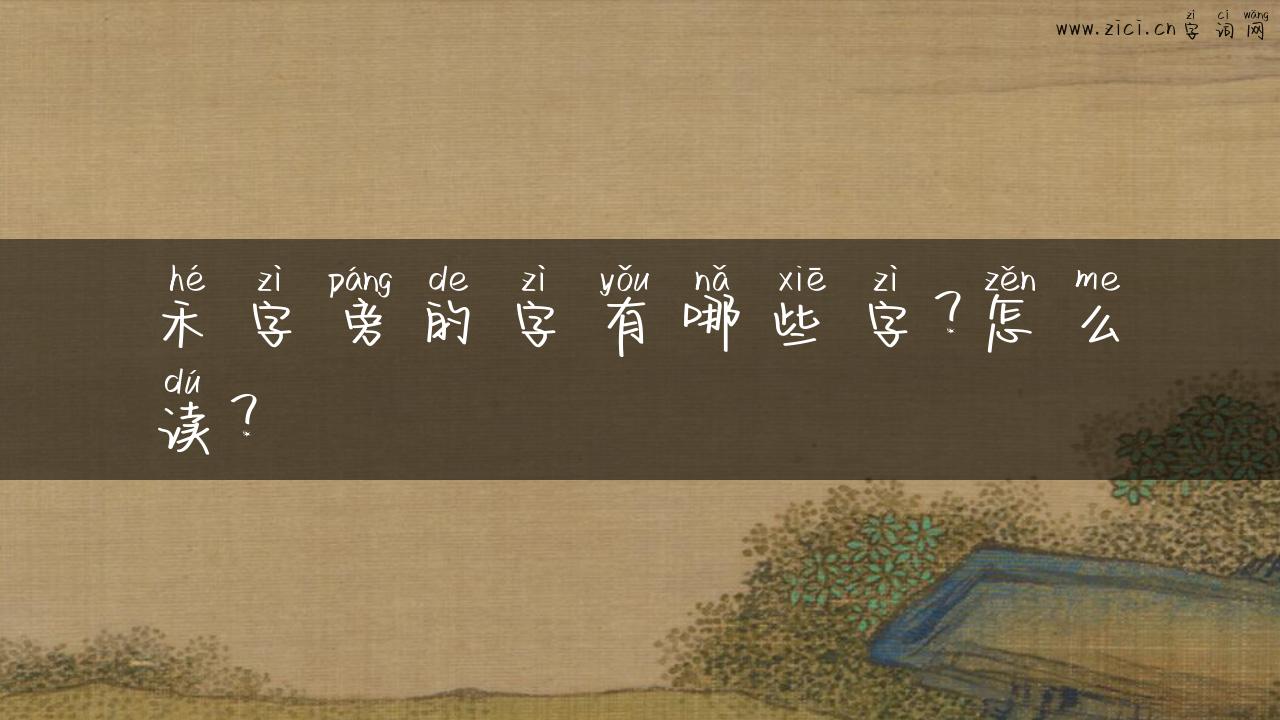 zì cí wǎng
www.zici.cn 字 词 网
hé zì páng de zì yǒu nǎ xiē zì zěn me
禾 字 旁 的 字 有 哪 些 字 ? 怎 么
dú
读 ?